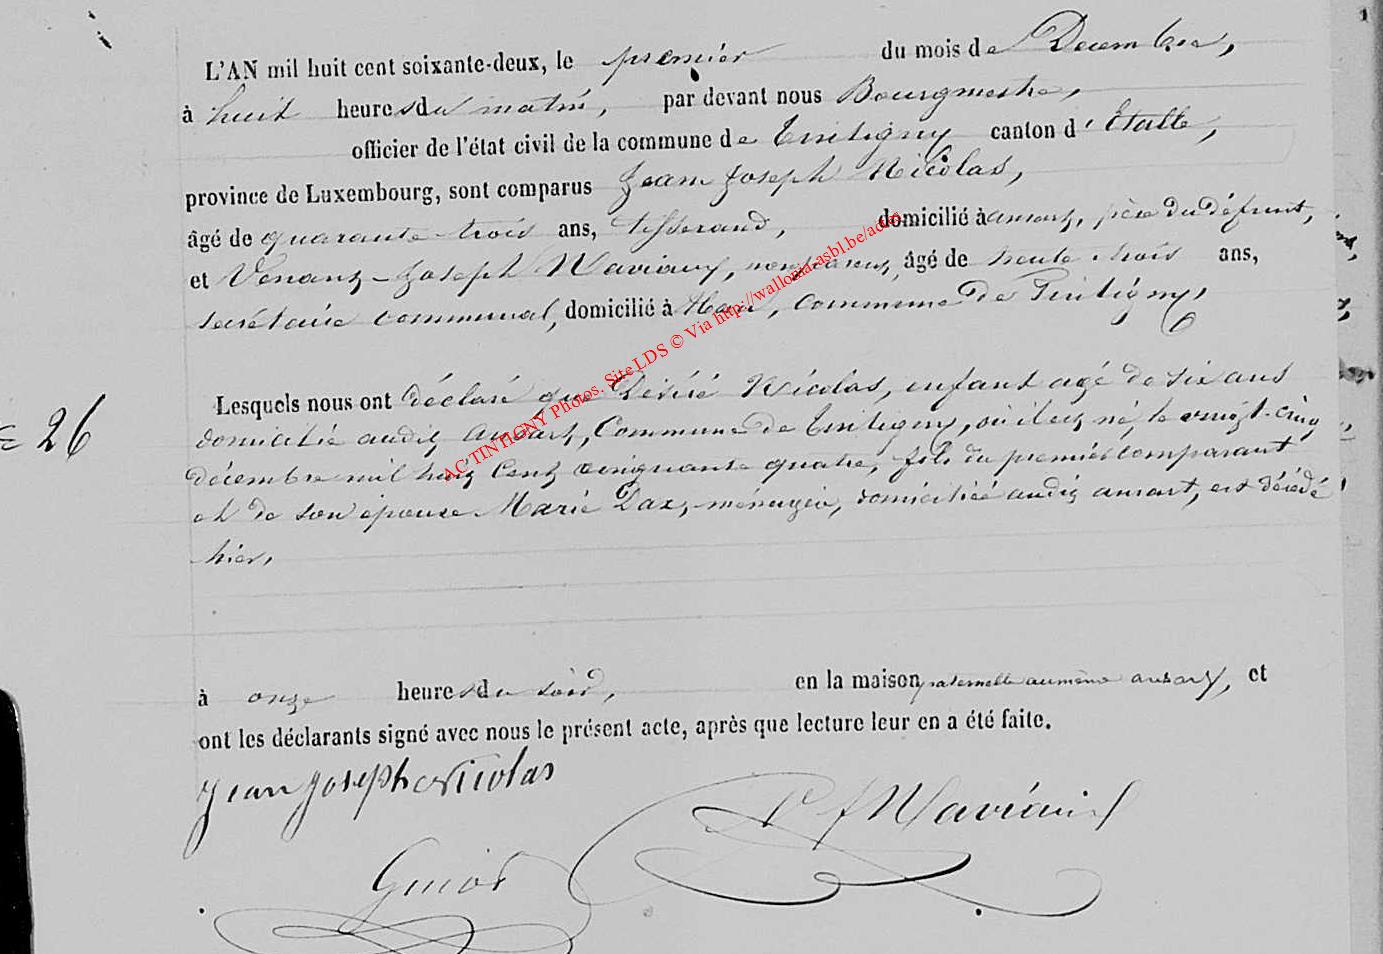 L'AN mil huit cent soixante-deux, le premier du mois de Decembre,
à huit heures du matin, par devant nous Bourgmestre,
officier de l'état civil de la commune de Tintigny canton d'Etalle,
province de Luxembourg, sont comparus Jean Joseph Nicolas,
âgé de quarante-trois ans, tisserand, domicilié à ansart, père du défunt,
et Venant-Joseph Maviaux, non parent, âgé de trente-trois ans,
secrétaire communal, domicilié à Han, commune de Tintigny,
Lesquels nous ont déclaré que Désiré Nicolas, enfant agé de six ans
= 26
domicilié audit ansart, Commune de Tintigny, où il est né, le vingt-cinq
décembre mil huit Cent cinquante quatre, fils du premier comparant
et de son épouse Marie Dax, ménagère, domiciliée audit ansart, est décédé
hier,
à onze heures du soir, en la maison paternelle au même ansart, et
ont les déclarants signé avec nous le présent acte, après que lecture leur en a été faite.
Jean Joseph Nicolas
Guiot
AC TINTIGNY Photos. Site LDS © Via http://wallonia-asbl.be/actes